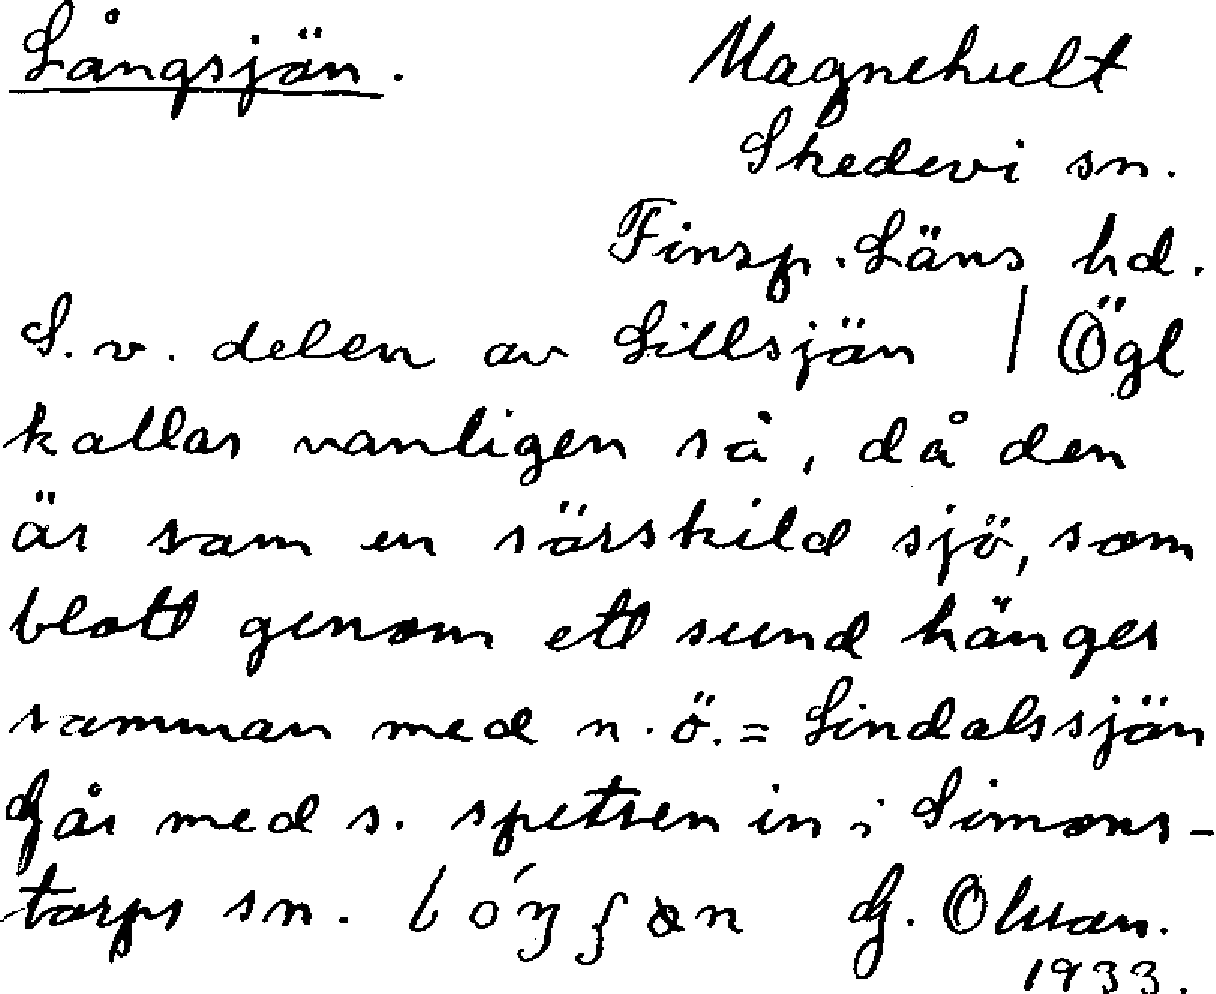 Långsjön. Magnehult
Skedevi sn.
Finsp. Läns hd.
S.v. delen av Lillsjön | Ögl
kallas vanligen så, då den
är som en särskild sjö, som
blott genom ett sund hänger
samman med n.ö. = Lindalssjön
Går med s. spetsen in i Simons-
torps sn. G. Olsson.
1933.